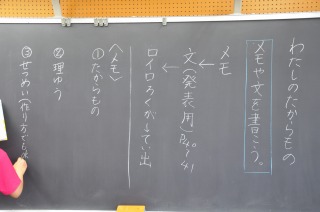 わたしのたからもの
メモや文を書こう。
メモ
↓
文(発表用)P40~41
↓
ロイロろくが して てい出
〈メモ〉
①たからもの
②理ゆう
③せつめい(作り方